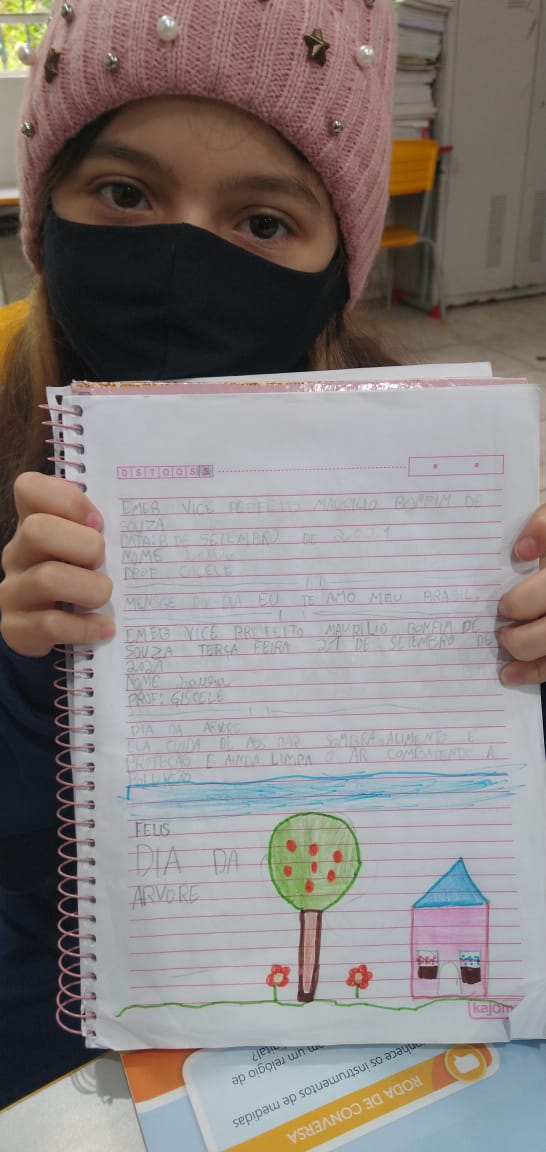 D S T Q Q S S
EMEB VICE PREFEITO MAURILIO BONFIM DE
SOUZA
DATA: 8 DE SETEMBRO DE
NOME
PROF GICELE
DIA EU TE AMO MEU BRASIL.
EMEB VICE PREFEITO MAURILIO BONFIM DE
SOUZA TERÇA FEIRA 21 DE SETEMBRO DE
2021
NOME
PROF: GISCELE
DIA DA ARVORE
ELA CUIDA DE NOS DAR SOMBRA, ALIMENTO E
PROTEÇÃO E AINDA LIMPA O AR COMBATENDO A
POLUIÇÃO
FELIS
DIA DA
ARVORE
kajom
RODA DE CONVERSA
nhece os instrumentos de medidas
om um relógio de
gital?